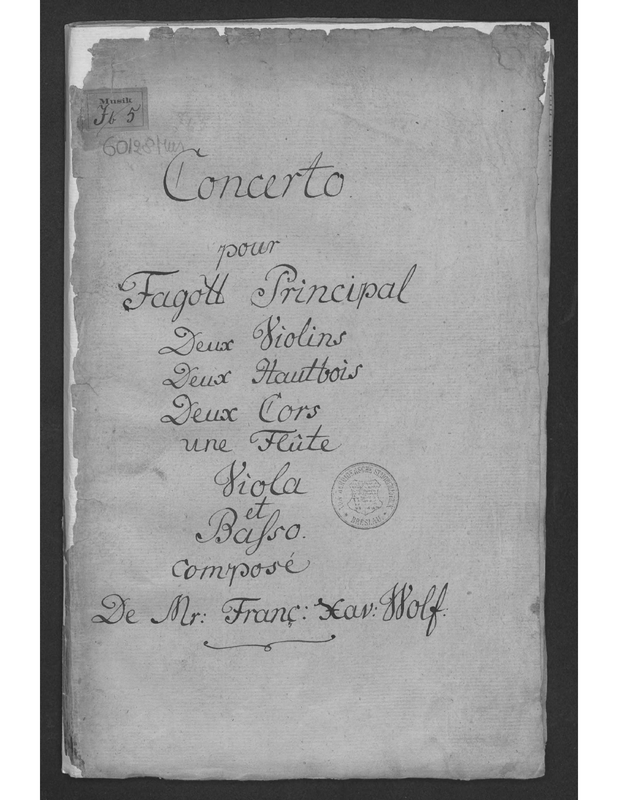 Musik
Jb 5
60128 Mus
Concerto.
pour
Fagott Principal
Deux Violins
Deux Hautbois
Deux Cors
une Flûte
Viola
et
Basso.
composé
De Mr: Franç: Xav: Wolf.
BRESLAU